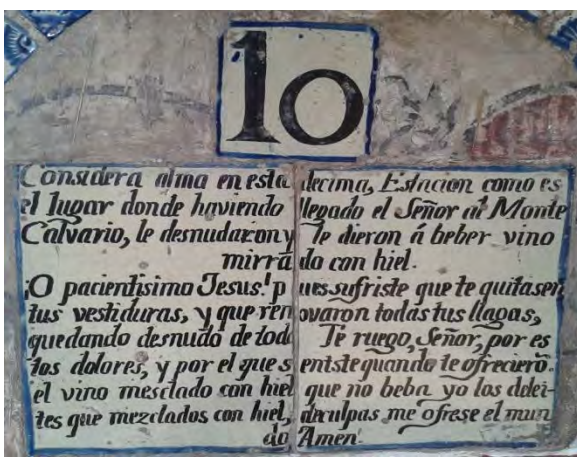 10
Considera alma en esta decima, Estacion como es
el lugar donde haviendo llegado el Señor al Monte
Calvario, le desnudaron y le dieron á beber vino
mirrado con hiel.
¡O pacientisimo Jesus! pues sufriste que te quitasen
tus vestiduras, y que renovaron todas tus llagas,
quedando desnudo de todo Te ruego, Señor, por es
tos dolores, y por el que sentste quando te ofrecierõ.
el vino mesclado con hiel que no beba yo los delei-
tes que mezclados con hiel, deculpas me ofrese el mun
do Amen.